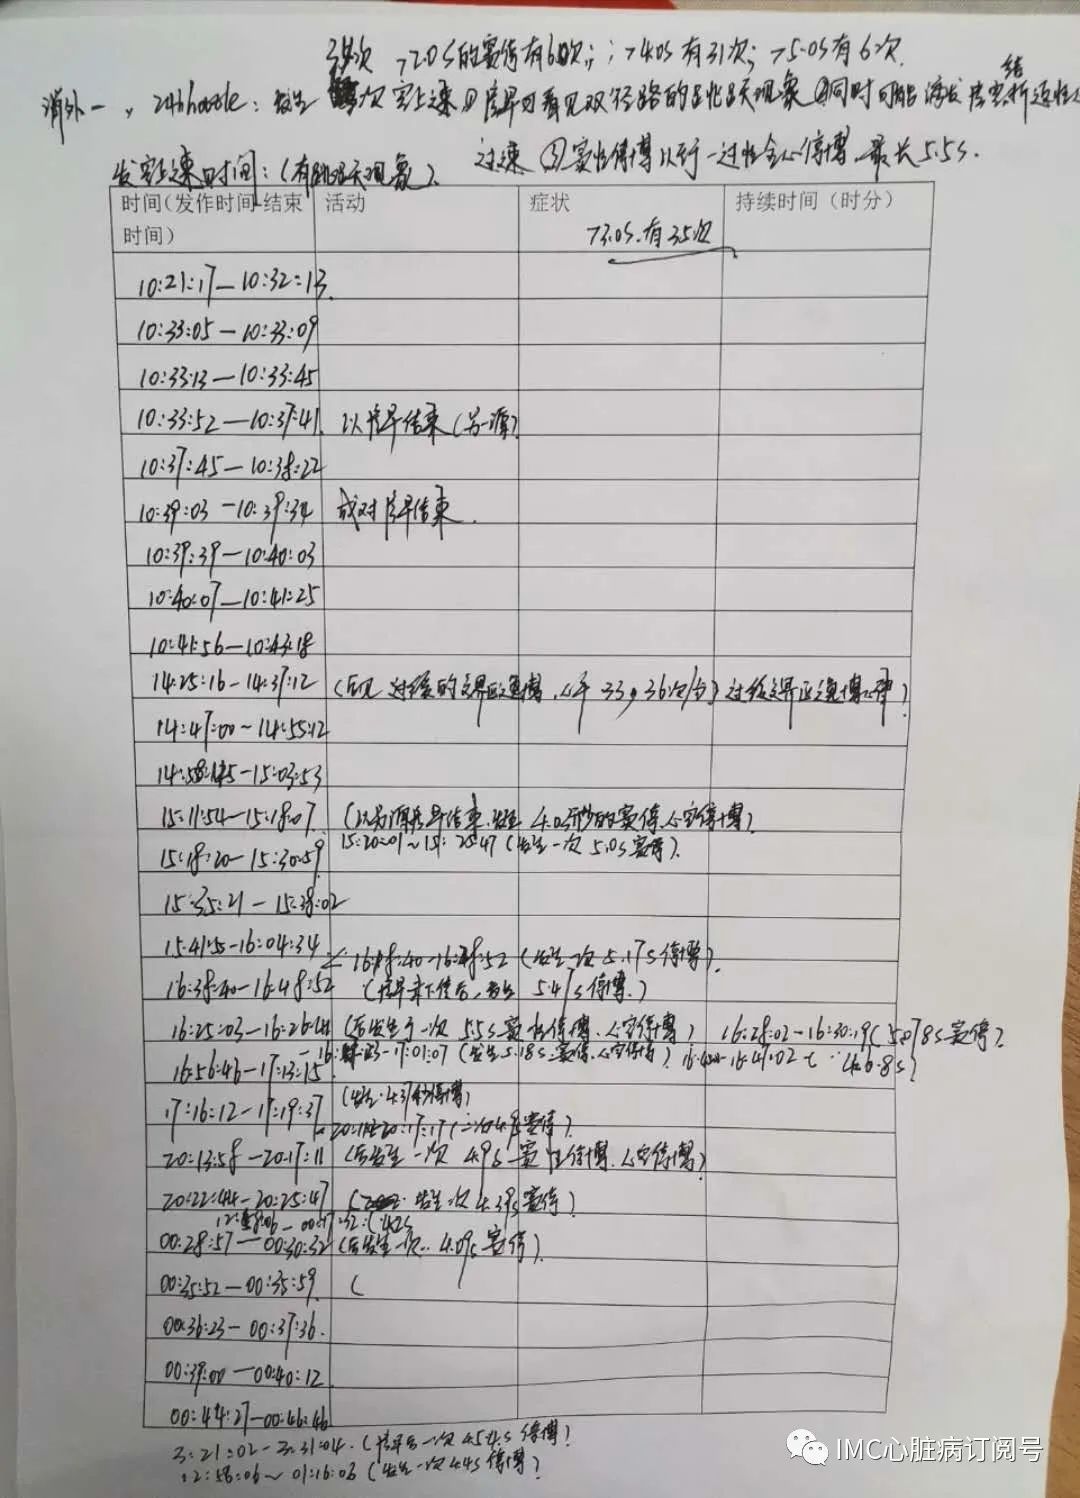 >2.0S的窦停有60次; >4.0S有31次; >5.0S有6次
消外一, 24h holter: 发生 次室上速①房早可看见双径路的跳跃现象②同时可能 房室结折返性心
过速 ③窦性停搏以至于一过性全心停搏, 最长5.5s.
发室上速时间:(有跳跃现象).
时间(发作时间-结束时间) 活动 症状 持续时间(时分)
>3.0S.有35次
10:21:17—10:32:13.
10:33:05—10:33:09
10:33:13—10:33:45
10:33:52—10:37:41. 以房早结束(另一源)
10:37:45—10:38:22
10:39:03-10:39:34 成对房早结束.
10:39:39—10:40:03
10:40:07—10:41:25
10:41:56—10:43:18
14:25:16-14:37:12 (后见 过缓的交界区逸搏,心率 33, 36次/分) 过缓交界区逸搏心律)
14:47:00~14:55:12
14:58:45-15:03:53
15:11:54-15:18:07 (以另源房早结束,发生 4.0s 的窦停,心室停搏)
15:20:01~15: 25:47 (发生一次 5.0s窦停).
15:18:20-15:30:59
15:35:21-15:38:02
15:41:55-16:04:34
-16:48:52 (发生一次5.17s停搏).
16:38:40-16:48:52 (房早未下传后,发生 5.47s停搏.)
16:25:03-16:26:44 (后发生了一次 5.5s窦性停搏,心室停搏) 16:28:02-16:30:19(5.078s窦停)
-17:01:07 (发生5.18s窦停,心室停搏) -16:47:02
16:56:46-17:13:15
(发生4.37秒停搏)
17:16:12-17:19:37
20:17:17( 窦停).
20:13:58-20:17:11 (后发生一次 4.9s窦性停搏,心室停搏)
20:22:44-20:25:47 发生一次4.39s窦停)
00:28:57—00:30:32 (后发生一次 4.09s窦停).
00:35:52—00:35:59 (
00:36:23-00:37:36.
00:39:00-00:40:12
00:44:27-00:46:46
3:21:02-3:31:04.(房早后一次4.54s停搏)
12:58:06~01:16:03 (发生一次4.4s停搏)
IMC心脏病订阅号